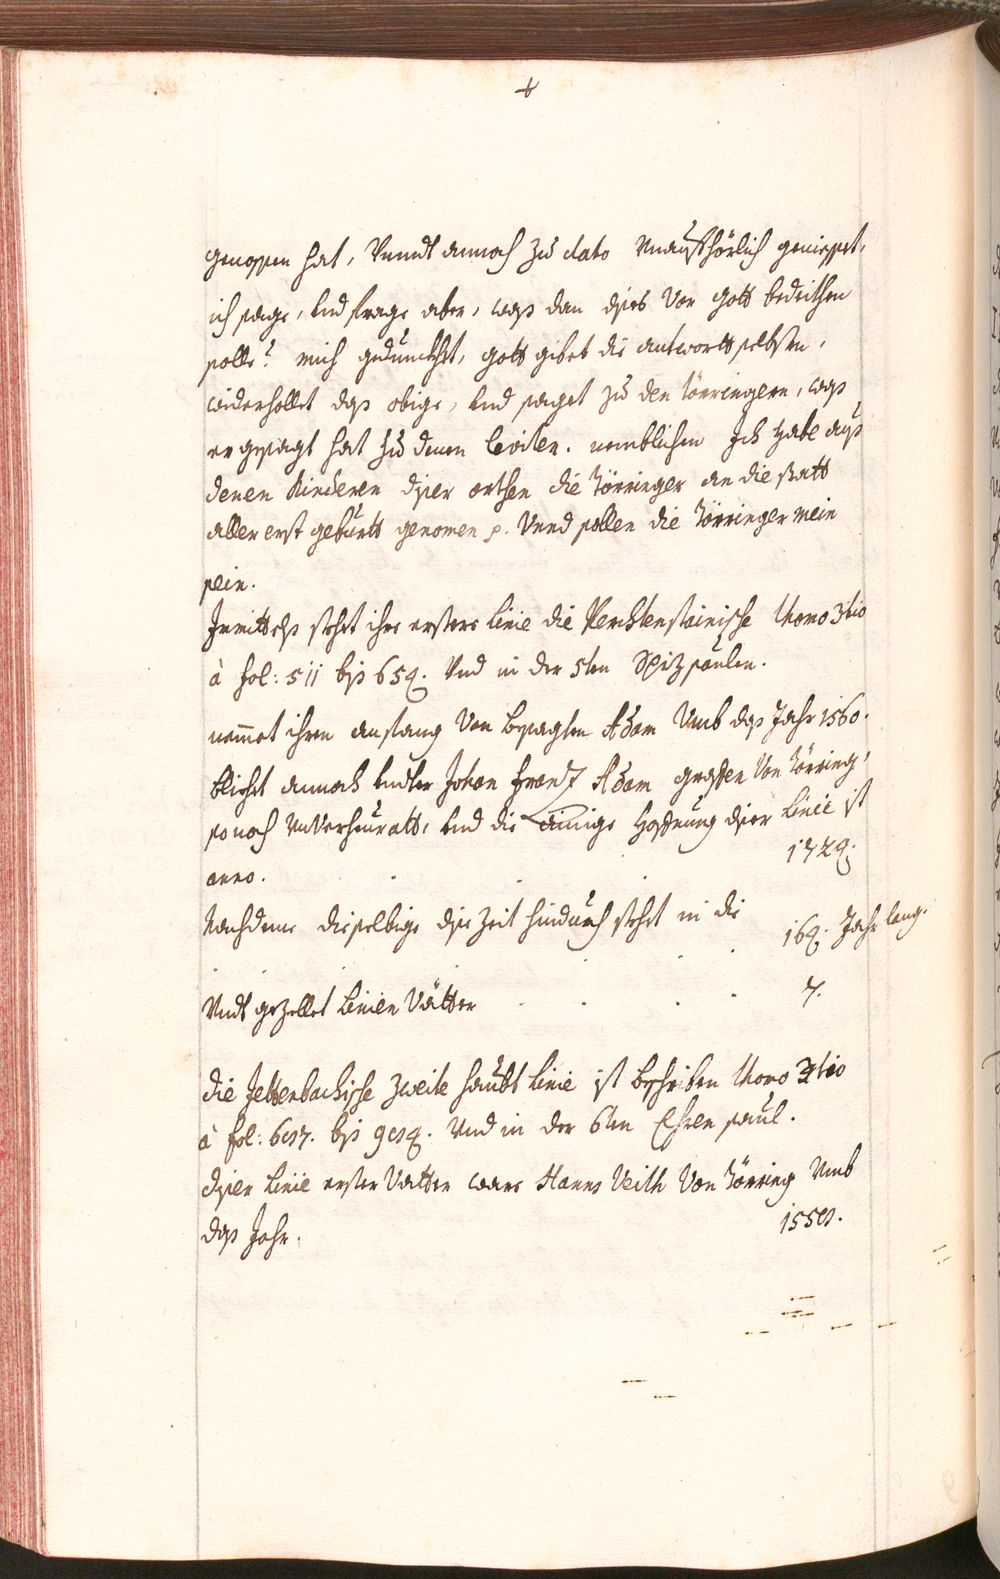 genossen hat, Vnndt annoch zu dato Vnaufhörlich geniesset,
ich sage, Vnd frage aber, was dan dises Von Gott bedeithen
solle? mich geduncket, Gott gibet die antwortt selbsten,
widerhollet dass obige, Vnd saget zu den Törringern, wass
er gesagt hat zu denen leviten. nemblichen Ich Habe auss
denen Kinderen diser orthen die Törringer an die statt
aller erst geburtt genomen p. Vnnd sollen die Törringer mein
sein.
Inmittelss stehet ihre erstere Linie die Perchtenstainische thomo 3tio
à fol: 511 biss 659. Vnd in der 5ten Spizsäulen.
nemmet ihren anfang Von besagten Adam Vmb dass Jahr 1560.
bliehet annoch Vndter Johan Frantz Adam graffen Von Törring,
so noch Vnverheuratt, Vnd die ainige Hoffnung diser Linie ist
anno. 1729.
Nachdeme dieselbige dise Zeit hindurch stehet in die
169. Jahr lang.
Vndt gezellet Linien Vätter 7.
die Jettenbachische zweite haubt Linie ist beschriben thomo 3tio
à fol: 657. biss 959. Vnd in der 6ten Ehren saul.
diser Linie erster Vatter ware Hanns Veith Von Törring Vmb
dass Jahr. 1550.